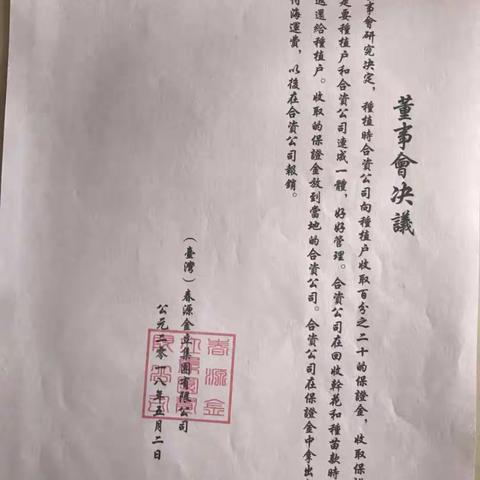 董事會决議
事會研究决定，種植時合資公司向種植户收取百分之二十的保證金，收取保證
是要種植户和合資公司連成一體，好好管理。合資公司在回收幹花和種苗款時
返還給種植户。收取的保證金放到當地的合資公司。合資公司在保證金中拿出
付海運費，以後在合資公司報銷。
（臺灣）春源金 集團有限公司
公元二零一八年五月二日
春源金